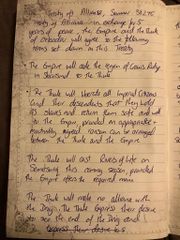 Treaty of Alliance, Summer 382YE
Treaty of Alliance - in exchange for 5
years of peace, the Empire and the Thule
of Otkodov will agree to the following
terms set down in this Treaty.
The Empire will cede the region of Crow's Ridge
in Skarsind to the Thule
The Thule will liberate all Imperial Citizens
(and their descendents) that they hold
as slaves and return them safe and well
to the Empire, provided an appropriate
mutually agreed ransom can be arranged
between the Thule and the Empire
The Thule will cast Rivers of Life on
Sermersuaq this coming season provided
the Empire offers the required mana
The Thule will make no alliance with
the Druj. The Thule express their desire
to see the end of the Druj and